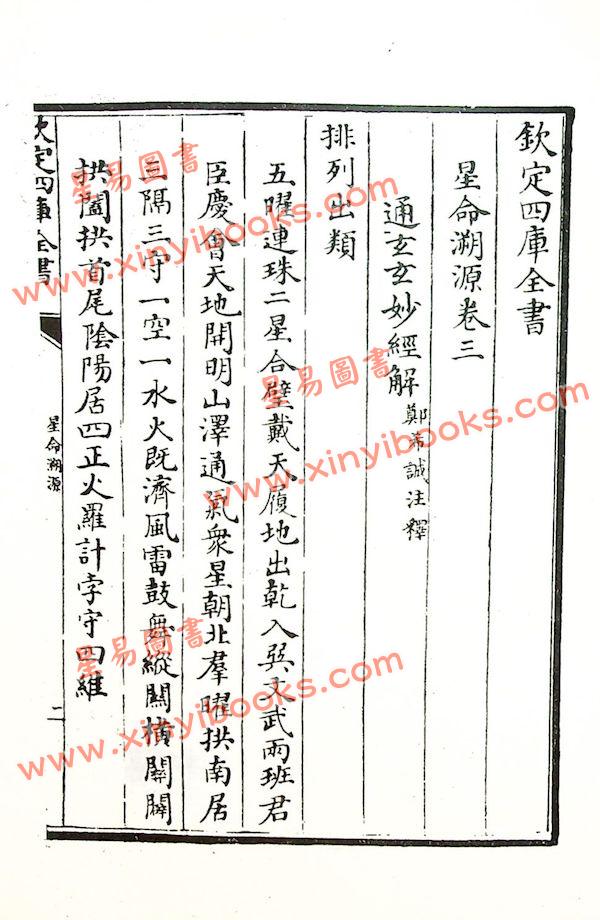 欽定四庫全書
星命溯源卷三
通玄玄妙經解 鄭希誠注釋
排列出類
五曜連珠二星合壁戴天履地出乾入巽文武兩班君
臣慶會天地開明山澤通氣衆星朝北羣曜拱南居
三隔三守一空一水火既濟風雷鼓舞縱關橫關關
拱闔拱首尾陰陽居四正火羅計孛守四維
欽定四庫全書
星命溯源
二
星易圖書
www.xinyibooks.com
星易圖書
www.xinyibooks.com
星易圖書
www.xinyibooks.com